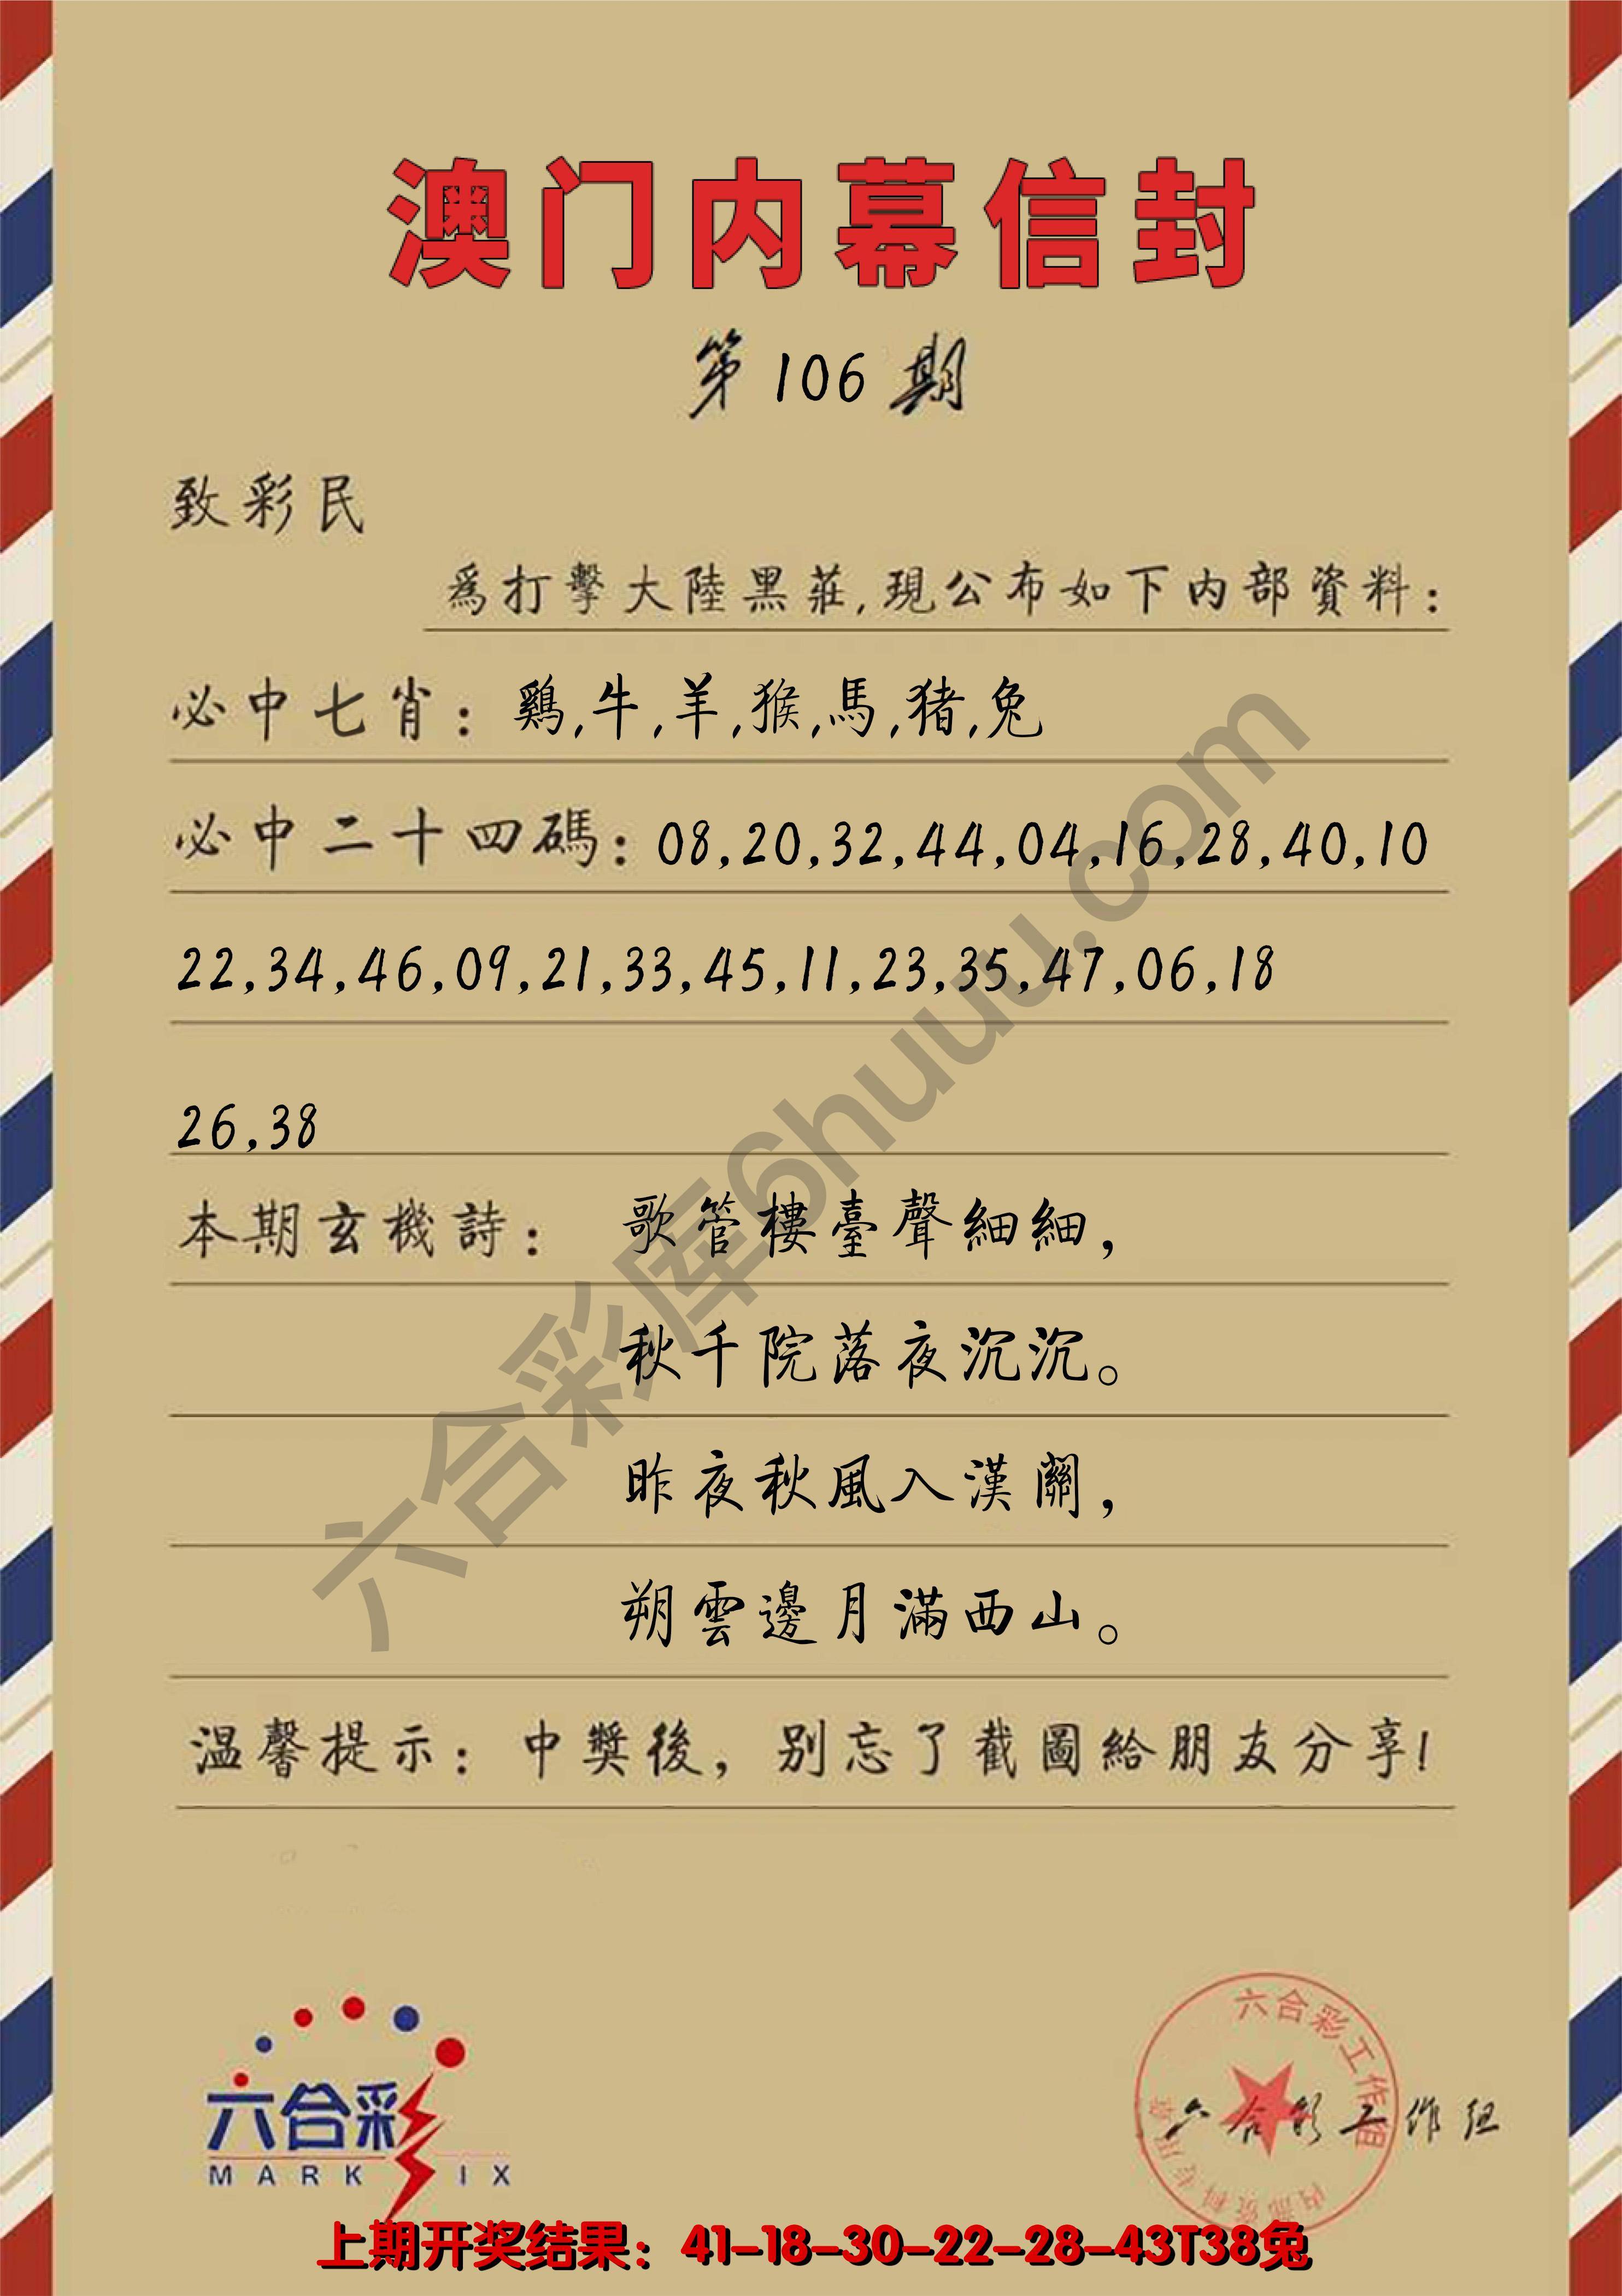 澳门内幕信封
第106期
致彩民
爲打擊大陸黑莊,現公布如下内部資料:
必中七肖: 鷄,牛,羊,猴,馬,猪,兔
必中二十四碼: 08,20,32,44,04,16,28,40,10
22,34,46,09,21,33,45,11,23,35,47,06,18
26,38
本期玄機詩: 歌管樓臺聲細細,
秋千院落夜沉沉。
昨夜秋風入漢關,
朔雲邊月滿西山。
温馨提示: 中獎後, 别忘了截圖給朋友分享!
六合彩库6huuu.com
六合彩
MARK SIX
六合彩工作组
内部资料专用章
六合彩工作组
上期开奖结果: 41-18-30-22-28-43T38兔